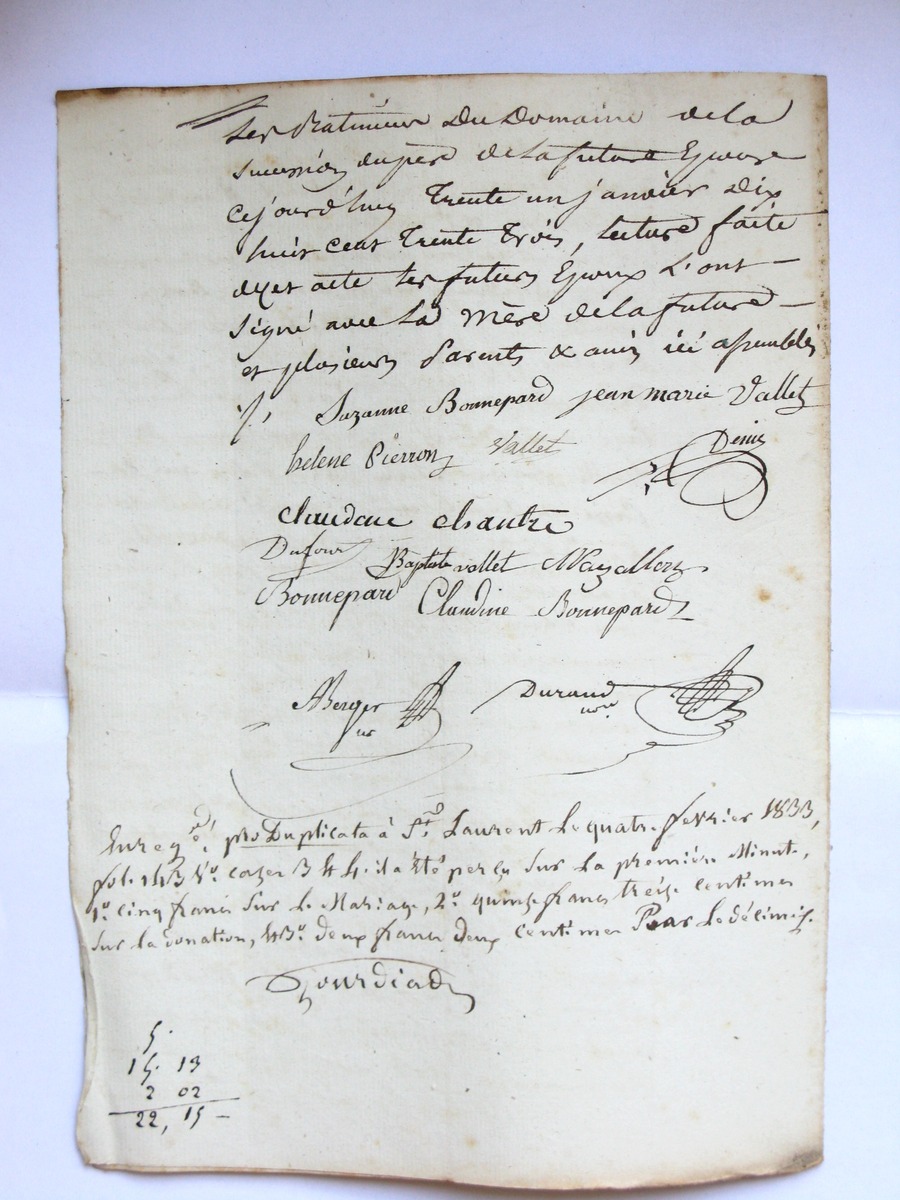 les Batimens Du Domaine de la
succession du père de la future Epouse
cejourd'huy Trente un janvier Dix
huit cent Trente Trois, lecture faite
dyet acte les futurs Epoux l'ont
signé avec la Mère de la future
et plusieurs Parents & amis ici assemblés
Suzanne Bonnepard jean marie Vallet
helene Pierron Vallet Denis
claudine chantre
Dufour Baptiste vallet
Bonnepard Claudine Bonnepard
Berger Durand
Enregré. pro Duplicata à St. Laurent le quatre fevrier 1833,
fol. 143 Vo. cazes 3 & 4. il a été perçu sur la première Minute,
1o. cinq francs sur le Mariage, 2o. quinze francs treize centimes
sur la donation, & 3o. deux francs deux centimes Pour le décime.
Gourdiad
5.
15. 13
2 02
22, 15